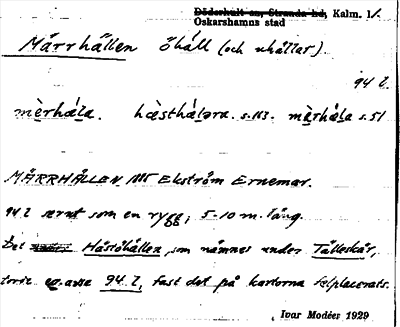 Döderhult sn, Stranda hd, Kalm. l.
Oskarshamns stad
Mårrhällen öhäll (och uhällar).
94 l.
mèrhála. hæsthálərə. s. 113. mèrhála s. 51
MÄRRHÄLLEN 1885 Ekström Ernemar.
94 l särnt som en rygg, 5-10 m. lång.
Det Hästöhällen, som nämnes under Tälleskär,
torde avse 94 l, fast det på kartorna felplacerats.
Ivar Modéer 1929